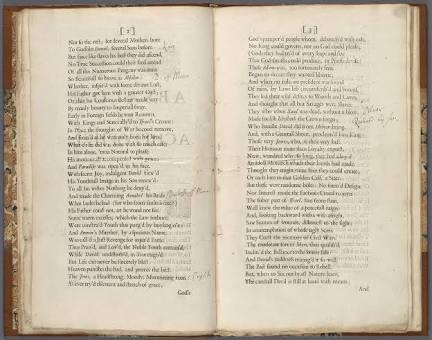 [2]
Not so the rest; for several Mothers bore
To Godlike David, several Sons before.
But since like slaves his bed they did ascend,
No True Succession could their seed attend.
Of all this Numerous Progeny was none
So Beautifull, so brave as Absolon:
Whether, inspir'd with some diviner Lust,
His Father got him with a greater Gust;
Or that his Conscious destiny made way
By manly beauty to Imperiall sway.
Early in Foreign fields he won Renown,
With Kings and States ally'd to Israel's Crown:
In Peace the thoughts of War he could remove,
And seem'd as he were only born for love.
What e'r he did was done with so much ease,
In him alone, 'twas Natural to please.
His motions all accompanied with grace;
And Paradise was open'd in his face.
With secret Joy, indulgent David view'd
His Youthfull Image in his Son renew'd:
To all his wishes Nothing he deny'd,
And made the Charming Annabel his Bride.
What faults he had (for who from faults is free?)
His Father could not, or he would not see.
Some warm excesses, which the Law forbore,
Were constru'd Youth that purg'd by boyling o'r:
And Amnon's Murther, by a specious Name,
Was call'd a Just Revenge for injur'd Fame.
Thus Prais'd, and Lov'd, the Noble Youth remain'd,
While David, undisturb'd, in Sion raign'd.
But Life can never be sincerely blest:
Heaven punishes the bad, and proves the best.
The Jews, a Headstrong, Moody, Murmuring race,
As ever try'd th' extent and stretch of grace;
God's
[3]
God's pamper'd people whom, debauch'd with ease,
No King could govern, nor no God could please;
(Gods they had tri'd of every shape and size
That God-smiths could produce, or Priests devise:)
These Adam-wits, too fortunately free,
Began to dream they wanted libertie;
And when no rule, no president was found
Of men, by Laws less circumscrib'd and bound,
They led their wild desires to Woods and Caves,
And thought that all but Savages were Slaves.
They who when Saul was dead, without a blow,
Made foolish Isbosheth the Crown forgo;
Who banisht David did from Hebron bring,
And, with a Generall Shout, proclaim'd him King:
Those very Jewes, who, at their very best,
Their Humour more than Loyalty exprest,
Now, wondred why, so long, they had obey'd
An Idoll Monarch which their hands had made:
Thought they might ruine him they could create;
Or melt him to that Golden Calf, a State.
But these were randome bolts: No form'd Design,
Nor Interest made the Factious Croud to joyn:
The sober part of Israel, free from stain,
Well knew the value of a peacefull raign:
And, looking backward with a wise afright,
Saw Seames of wounds, dishonest to the sight;
In contemplation of whose ugly Scars,
They Curst the memory of Civil Wars.
The moderate sort of Men, thus qualifi'd,
Inclin'd the Ballance to the better side:
And David's mildness manag'd it so well,
The Bad found no occasion to Rebell.
But, when to Sin our byast Nature leans,
The carefull Devil is still at hand with means;
And